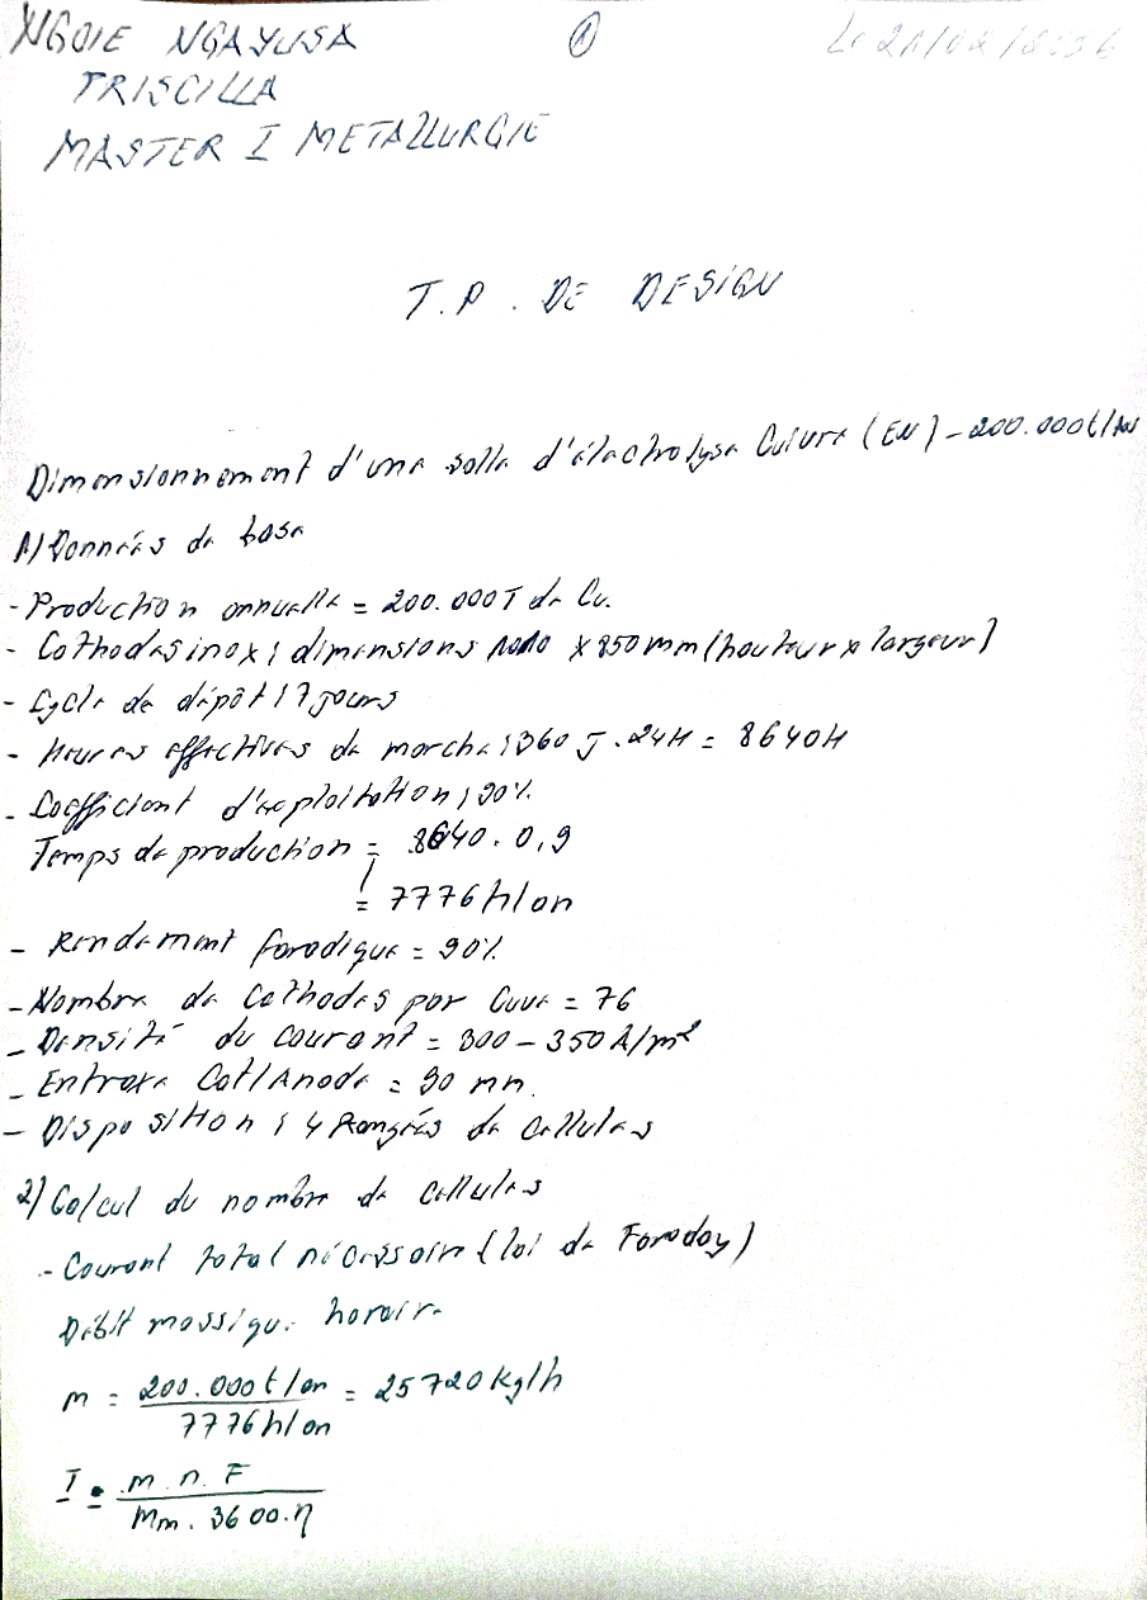 NGOIE NGAYUSA
1
Le 21/02/2026
TRISCILLA
MASTER I METALLURGIE
T.P. DE DESIGN
Dimensionnement d'une salle d'électrolyse Cuivre (EW) - 200.000t/an
1) Données de base
- Production annuelle = 200.000T de Cu.
- Cathodes inox : dimensions × 850mm (hauteur × largeur)
- Cycle de dépôt : 7 jours
- Heures effectives de marche : 360 J . 24H = 8640H
- Coefficient d'exploitation : 90%.
Temps de production = 8640 . 0,9
= 7776 h/an
- Rendement faradique = 90%.
- Nombre de Cathodes par Cuve = 76
- Densité du courant = 300 - 350 A/m²
- Entraxe Cat/Anode = 90 mm.
- Disposition : 4 Rangées de Cellules
2) Calcul du nombre de cellules
- Courant total nécessaire (loi de Faraday)
Débit massique horaire
m = 200.000t/an / 7776h/an = 25720 kg/h
I = m . n . F / Mm . 3600 . η